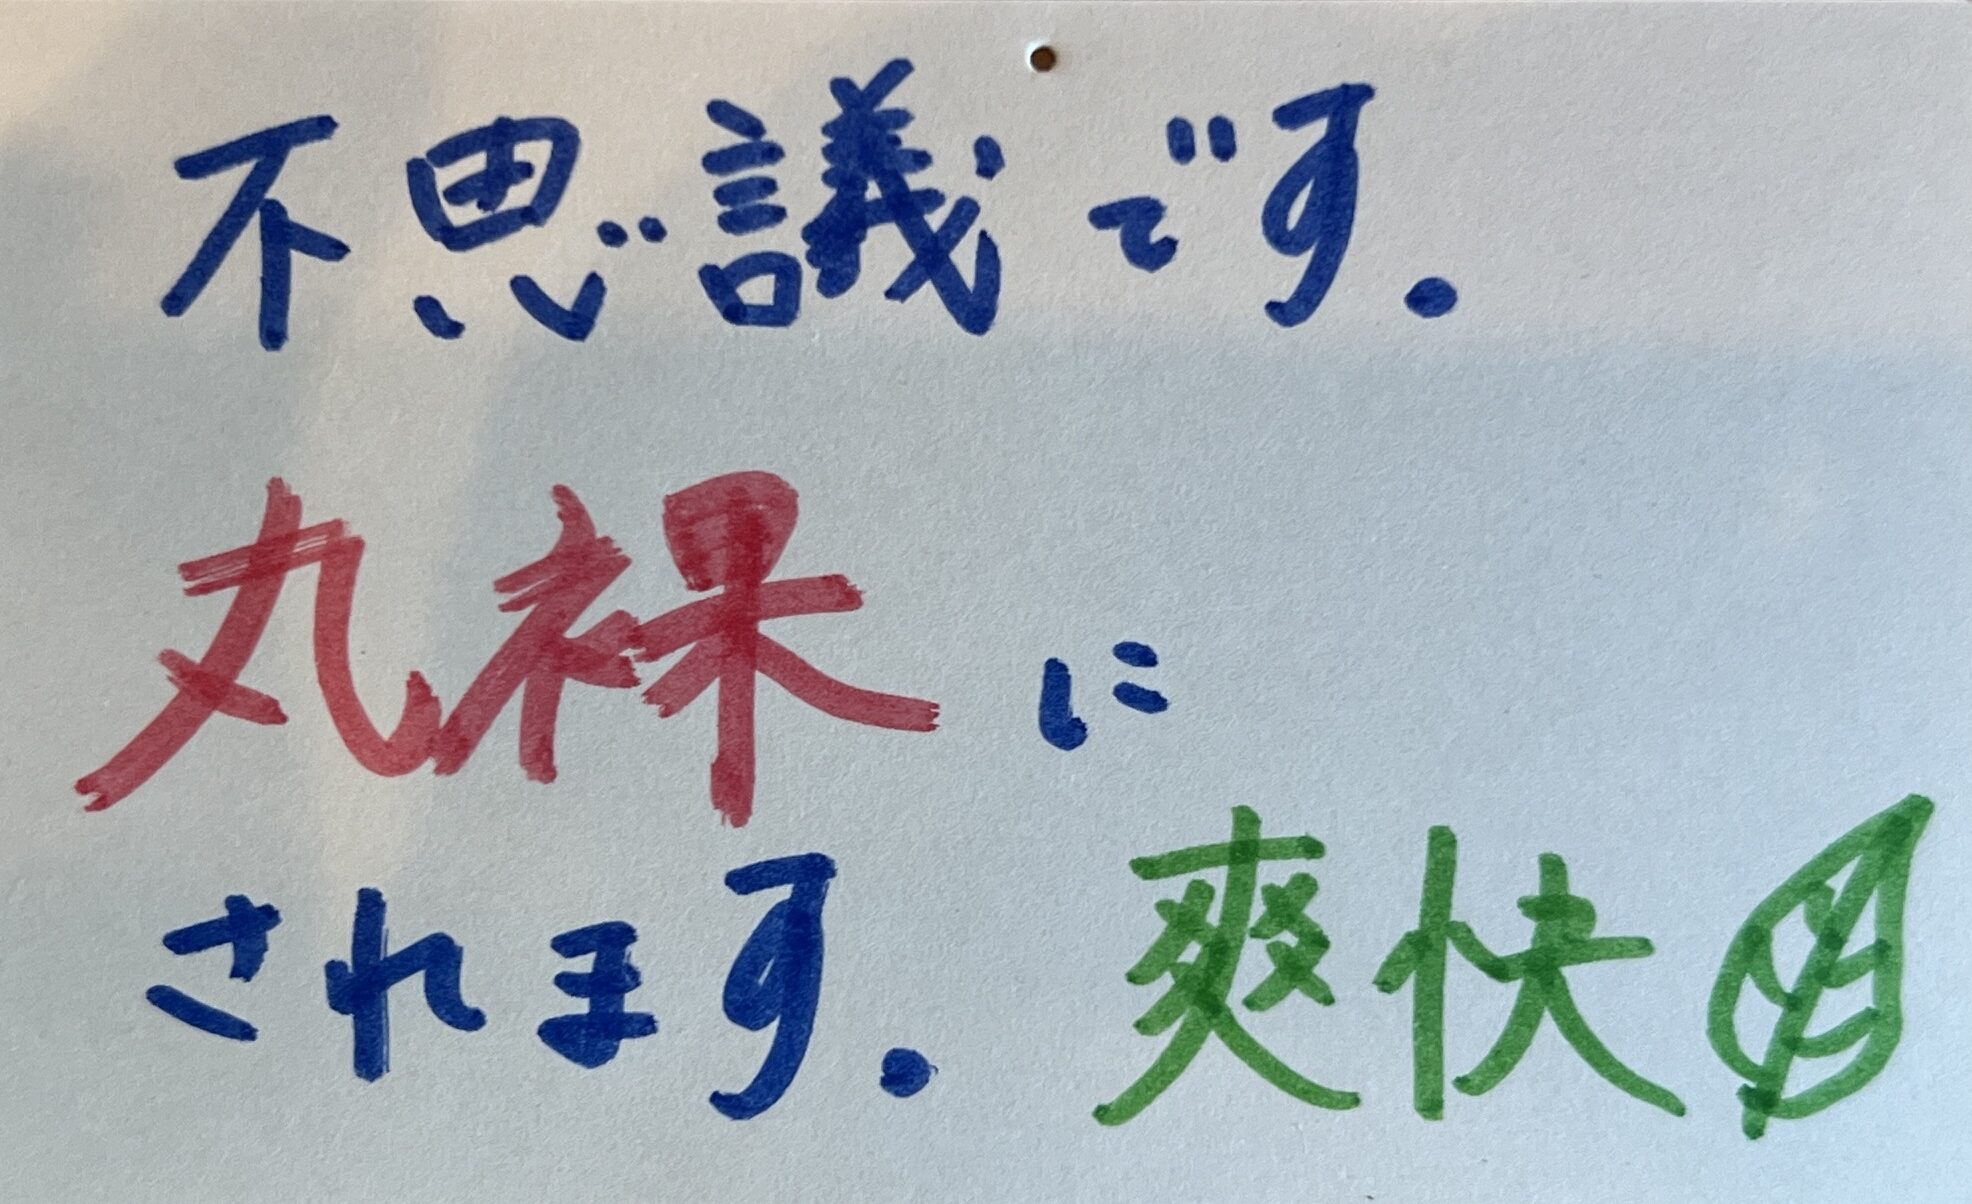 不思議です.
丸裸に
されます. 爽快